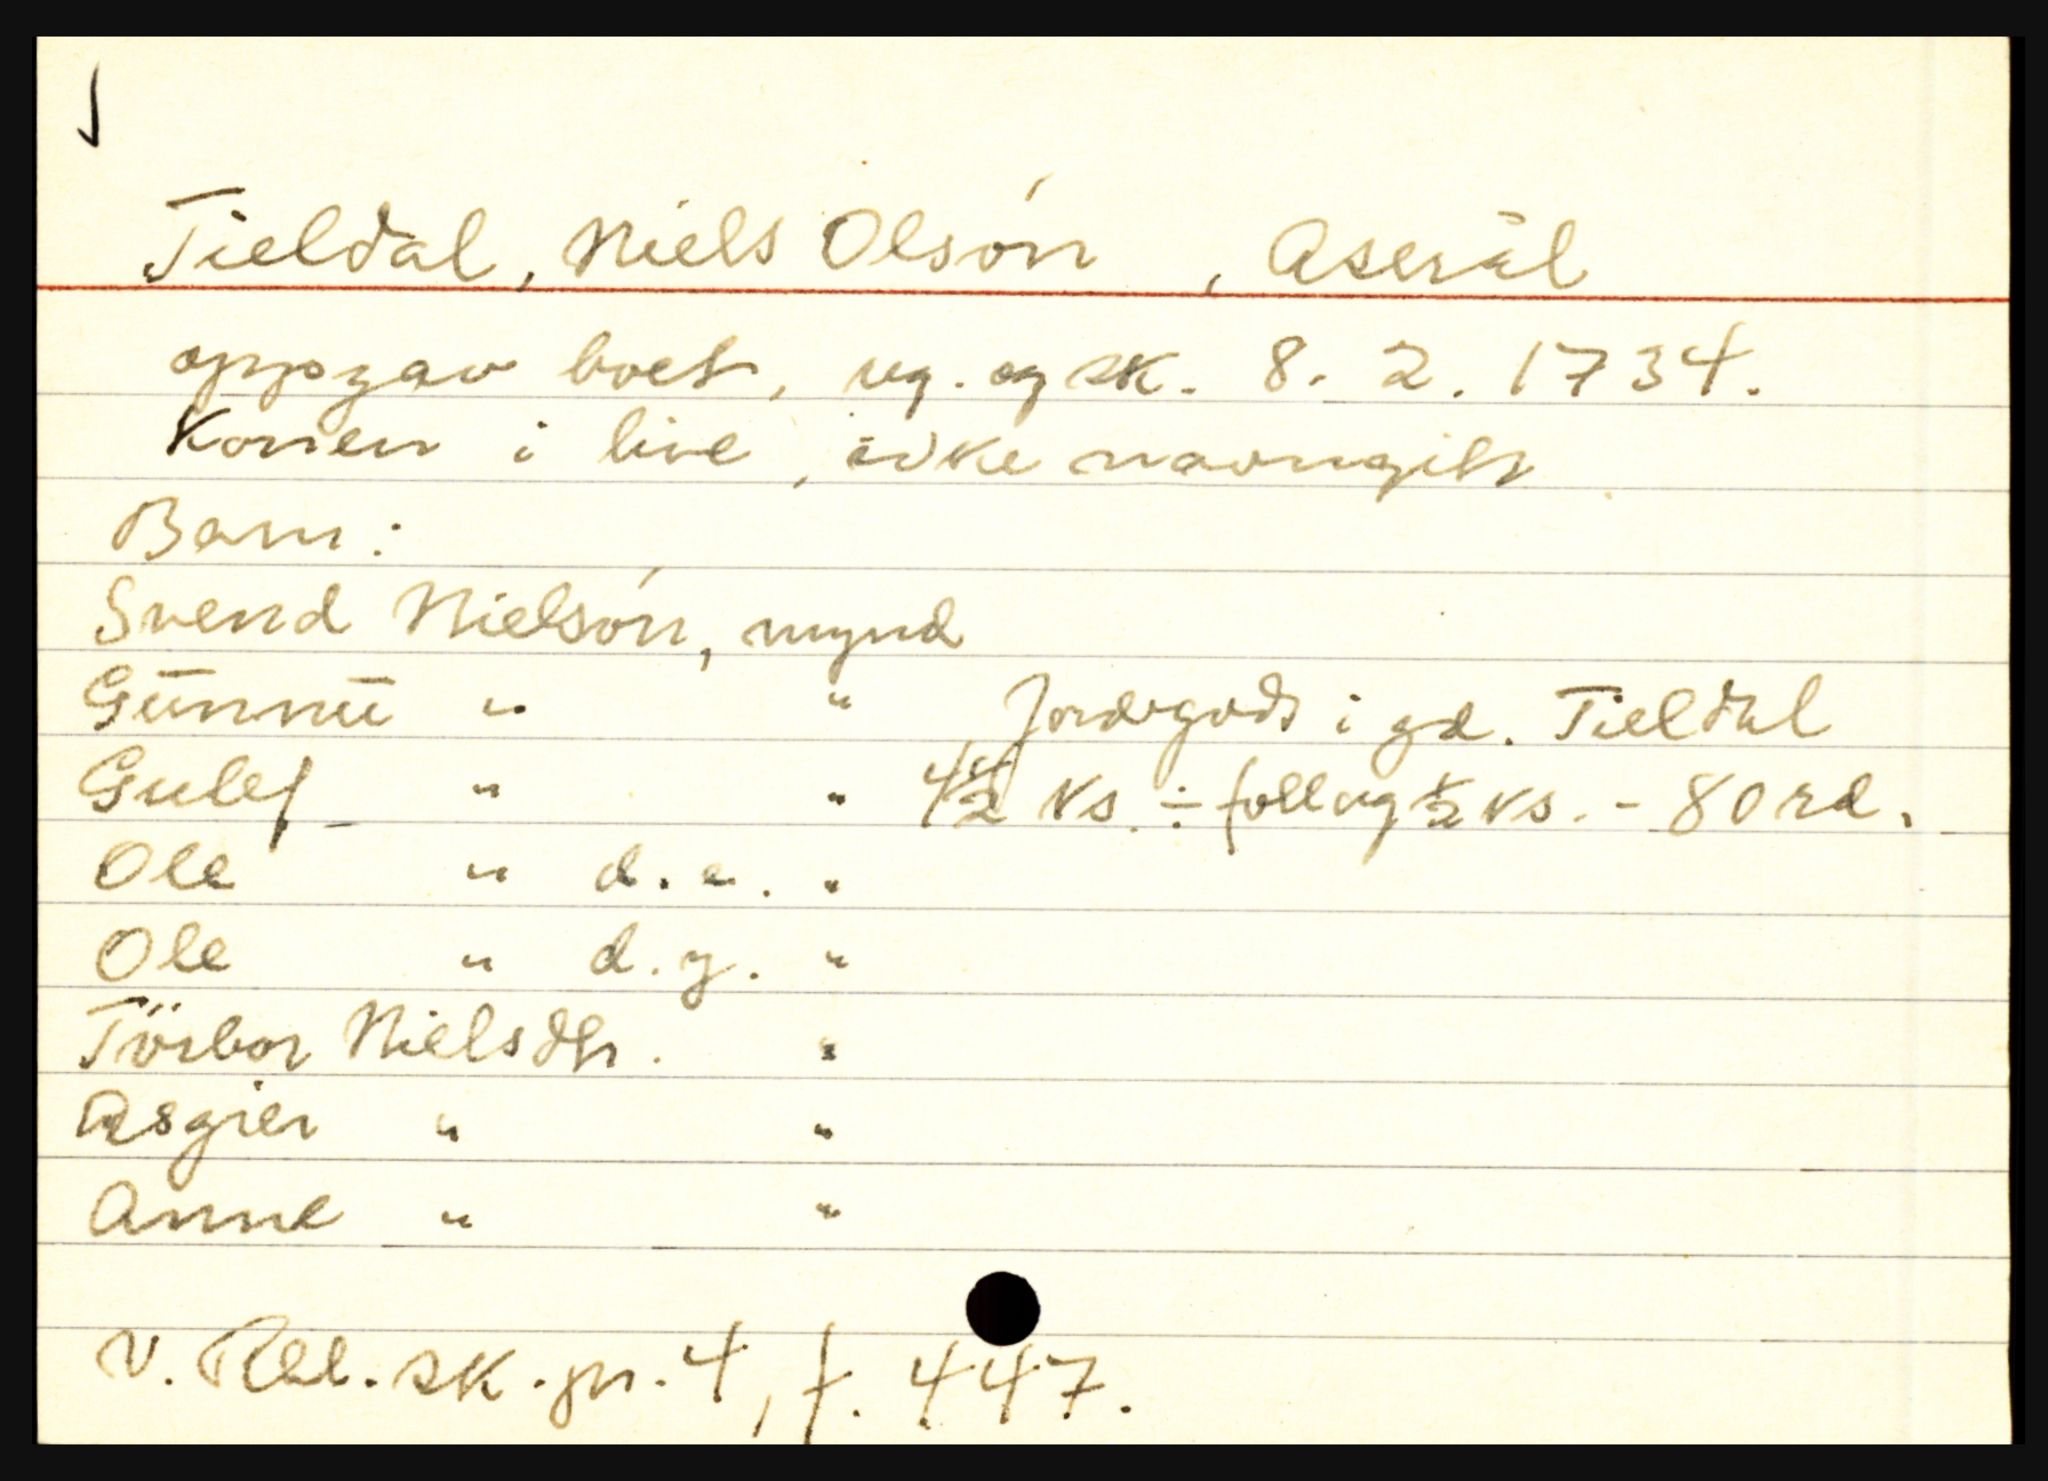 Tieldal, Niels Olsón , Aserål
oppgav boet, reg. og sk. 8. 2. 1734.
Konen i live, ikke navngitt
Barn:
Svend Nielsón, mynd
Gūnnū " " Jordegods i gd. Tieldal
Gulef " " 4 1/2 ks. ÷ follaug 1/2 ks. - 80 rd.
Ole " d.e. "
Ole " d.y. "
Törbor Nielsdtr. "
Asgier " "
Anne " "
V. Rbl. sk. pr. 4, f. 447.